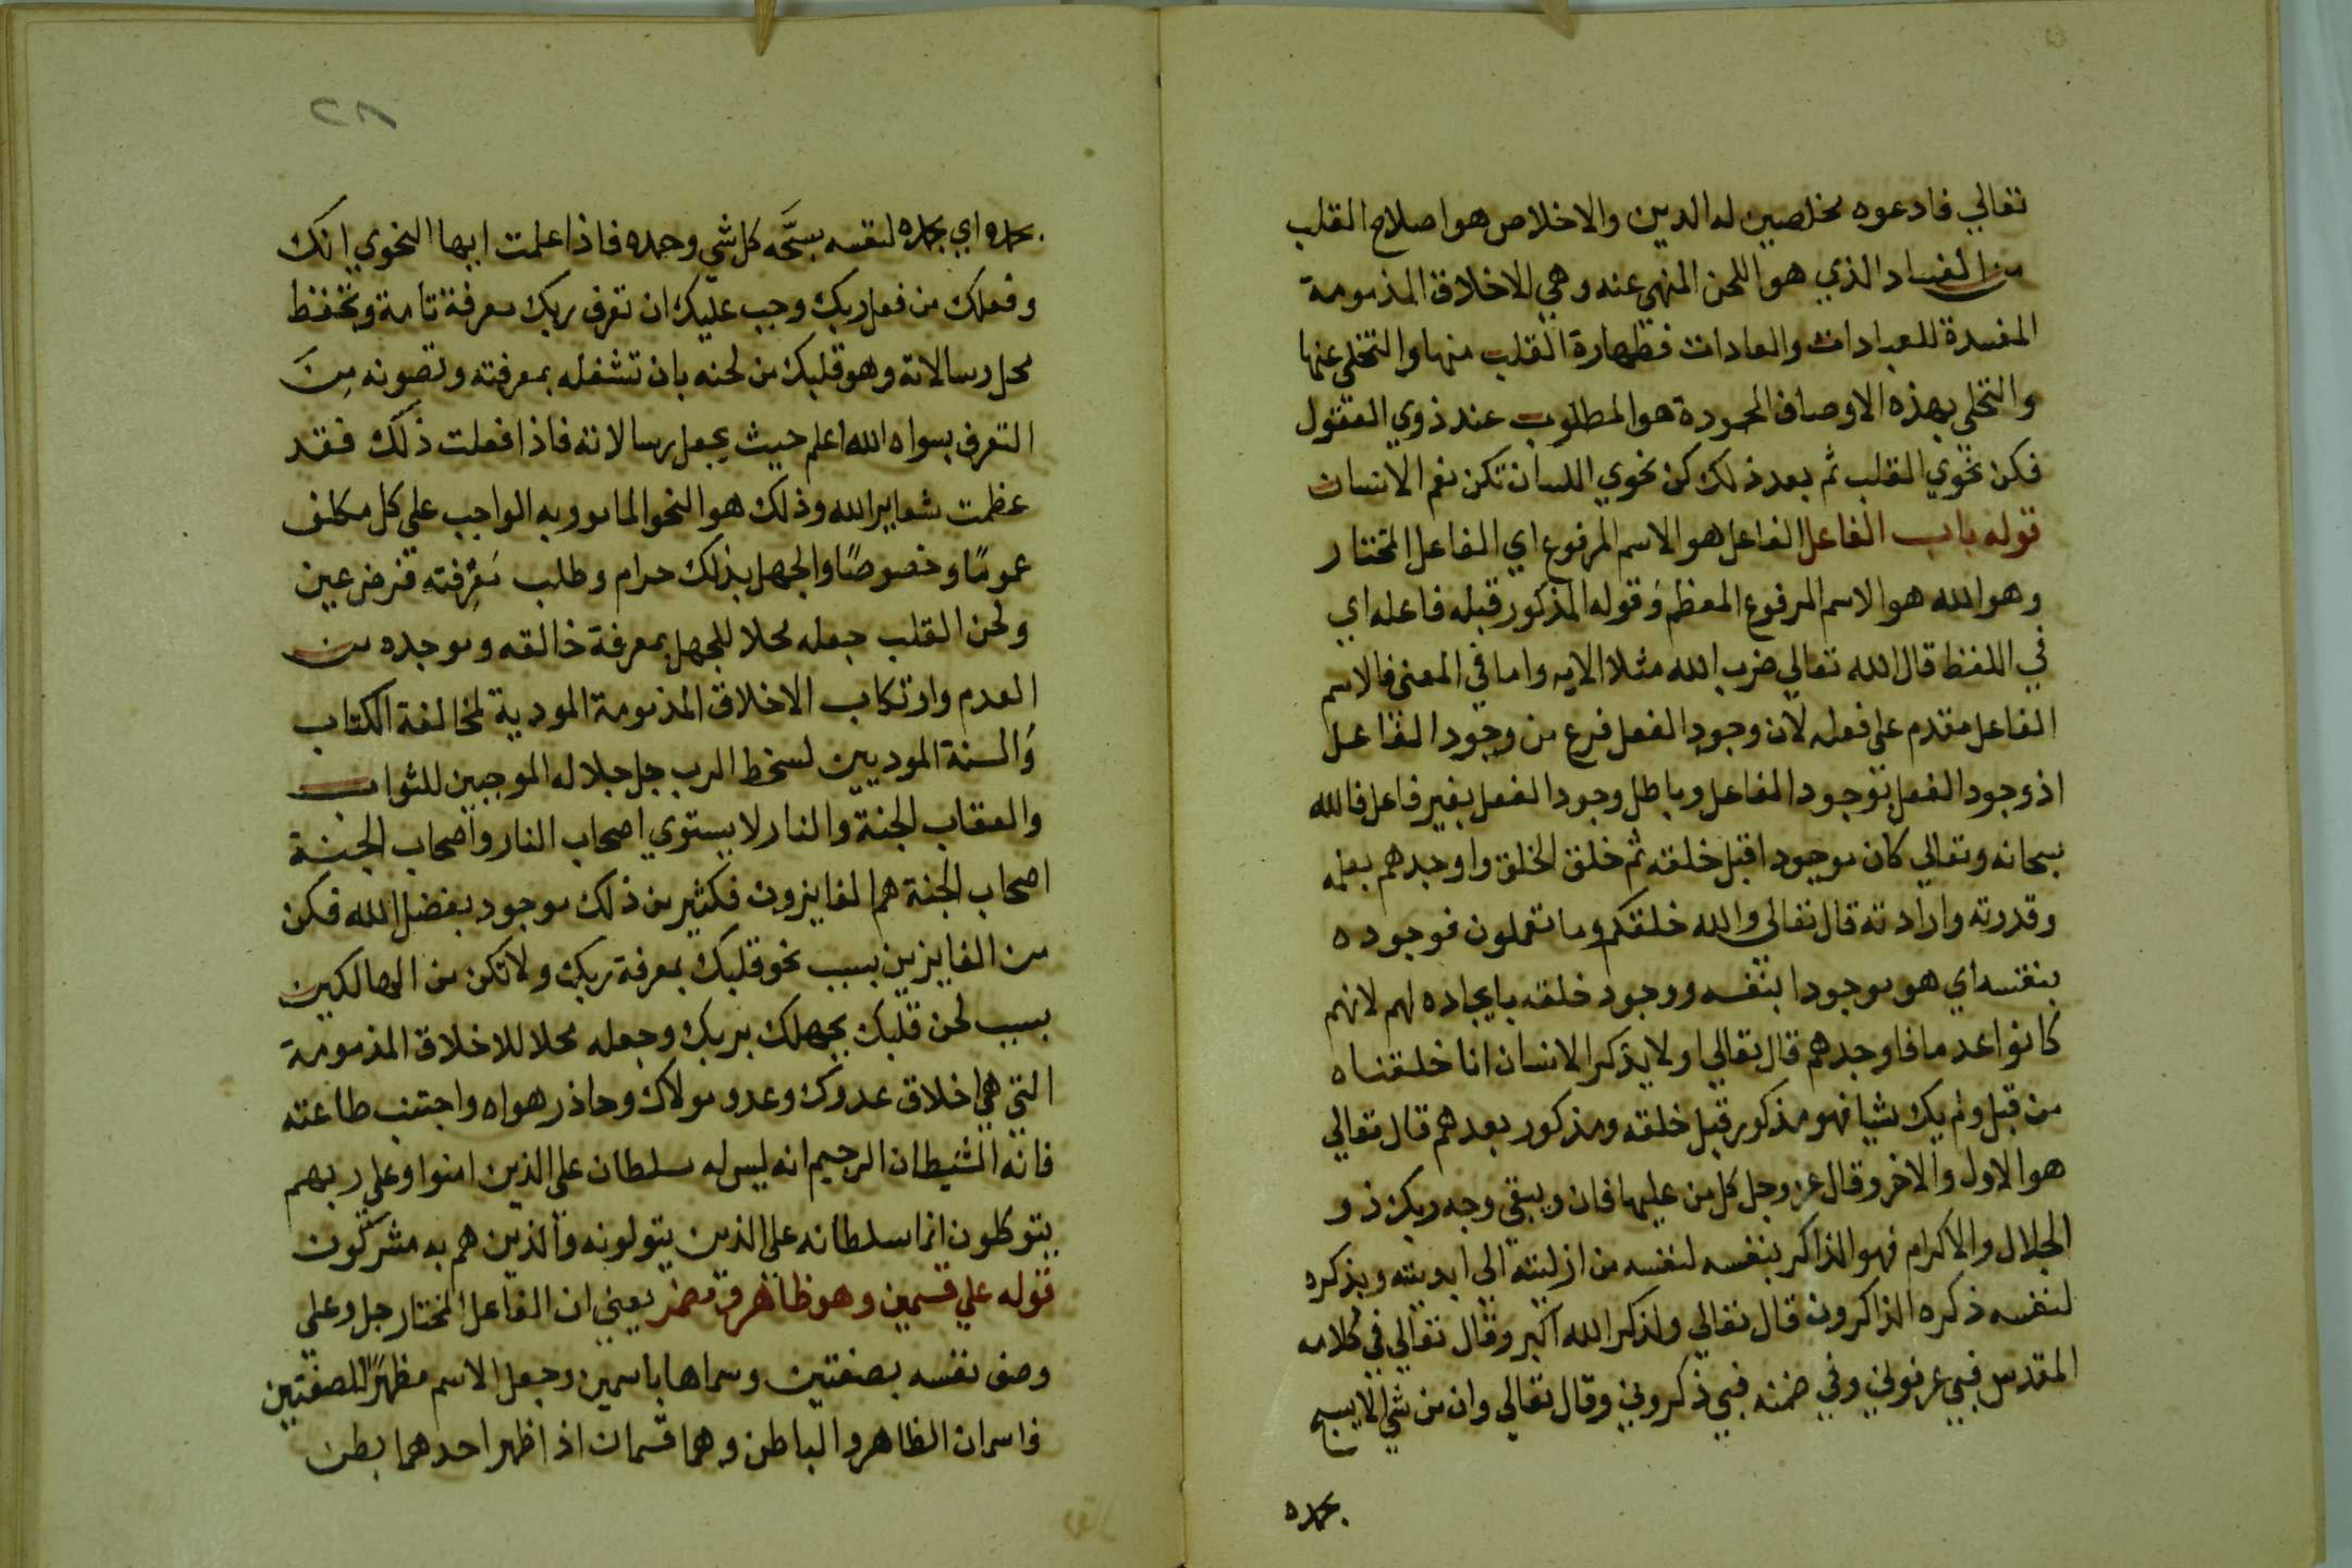 تعالي فادعوه مخلصين له الدين والاخلاص هو اصلاح القلب
من الفساد الذي هو اللحن المنهي عنه وهي الاخلاق المذمومة
المفسدة للعبادات والعادات فطهارة القلب منها والتخلي عنها
والتحلي بهذه الاوصاف المحمودة هو المطلوب عند ذوي العقول
فكن نحوي القلب ثم بعد ذلك كن نحوي اللسان تكن نعم الانسان
قوله باب الفاعل الفاعل هو الاسم المرفوع اي الفاعل المختار
وهو الله هو الاسم المرفوع المعظم وقوله المذكور قبله فاعله اي
في اللفظ قال الله تعالي ضرب الله مثلا الايه واما في المعني فالاسم
الفاعل مقدم علي فعله لان وجود الفعل فرع من وجود الفاعل
اذ وجود الفعل بوجود الفاعل وباطل وجود الفعل بغير فاعل فالله
سبحانه وتعالي كان موجودا قبل خلقه ثم خلق الخلق واوجدهم بعلمه
وقدرته وارادته قال تعالي والله خلقكم وما تعملون فوجوده
بنفسه اي هو موجودا بنفسه ووجود خلقه بايجاده لهم لانهم
كانوا عدما فاوجدهم قال تعالي اولا يذكر الانسان انا خلقناه
من قبل ولم يك شيا فهو مذكور قبل خلقه ومذكور بعدهم قال تعالي
هو الاول والاخر وقال عز وجل كل من عليها فان ويبقي وجه ربك ذو
الجلال والاكرام فهو الذاكر بنفسه لنفسه من ازليته الي ابديته وبذكره
لنفسه ذكره الذاكرون قال تعالي ولذكر الله اكبر وقال تعالي في كلامه
المقدس فبي عرفوني وفي ضمنه فبي ذكروني وقال تعالي وان من شي الا يسبح
بحمده
٢٨
بحمده اي بحمده لنفسه يسبحه كل شي وحمده فاذا علمت ايها النحوي انك
وفعلك من فعل ربك وجب عليك ان تعرف ربك معرفة تامة وتحفظ
محل رسالاته وهو قلبك من لحنه بان تشغله بمعرفته وتصونه مِنَ
التعرف بسواه الله اعلم حيث يجعل رسالاته فاذا فعلت ذلك فقد
عظمت شعاير الله وذلك هو النحو المامور به الواجب علي كل مكلف
عمومًا وخصوصًا والجهل بذلك حرام وطلب مَعْرِفته فرض عين
ولحن القلب جعله محلا للجهل بمعرفة خالقه وموجده من
العدم وارتكاب الاخلاق المذمومة المودية لمخالفة الكتاب
والسنة الموديين لسخط الرب جل جلاله الموجبين للثواب
والعقاب الجنة والنار لا يستوي اصحاب النار واصحاب الجنة
اصحاب الجنة هم الفايزون فكثير من ذلك موجود بفضل الله فكن
من الفايزين بسبب نحو قلبك بمعرفة ربك ولا تكن من الهالكين
بسبب لحن قلبك بجهلك بربك وجعله محلا للاخلاق المذمومة
التي هي اخلاق عدوك وعدو مولاك وحاذر هواه واجتنب طاعته
فانه الشيطان الرجيم انه ليس له سلطان علي الذين امنوا وعلي ربهم
يتوكلون انما سلطانه علي الذين يتولونه والذين هم به مشركون
قوله علي قسمين وهو ظاهر ومضمر يعني ان الفاعل المختار جل وعلي
وصف نفسه بصفتين وسماها باسمين وجعل الاسم مظهرًا للصفتين
فاسمان الظاهر والباطن وهما قسمان اذا ظهر احدهما بطن